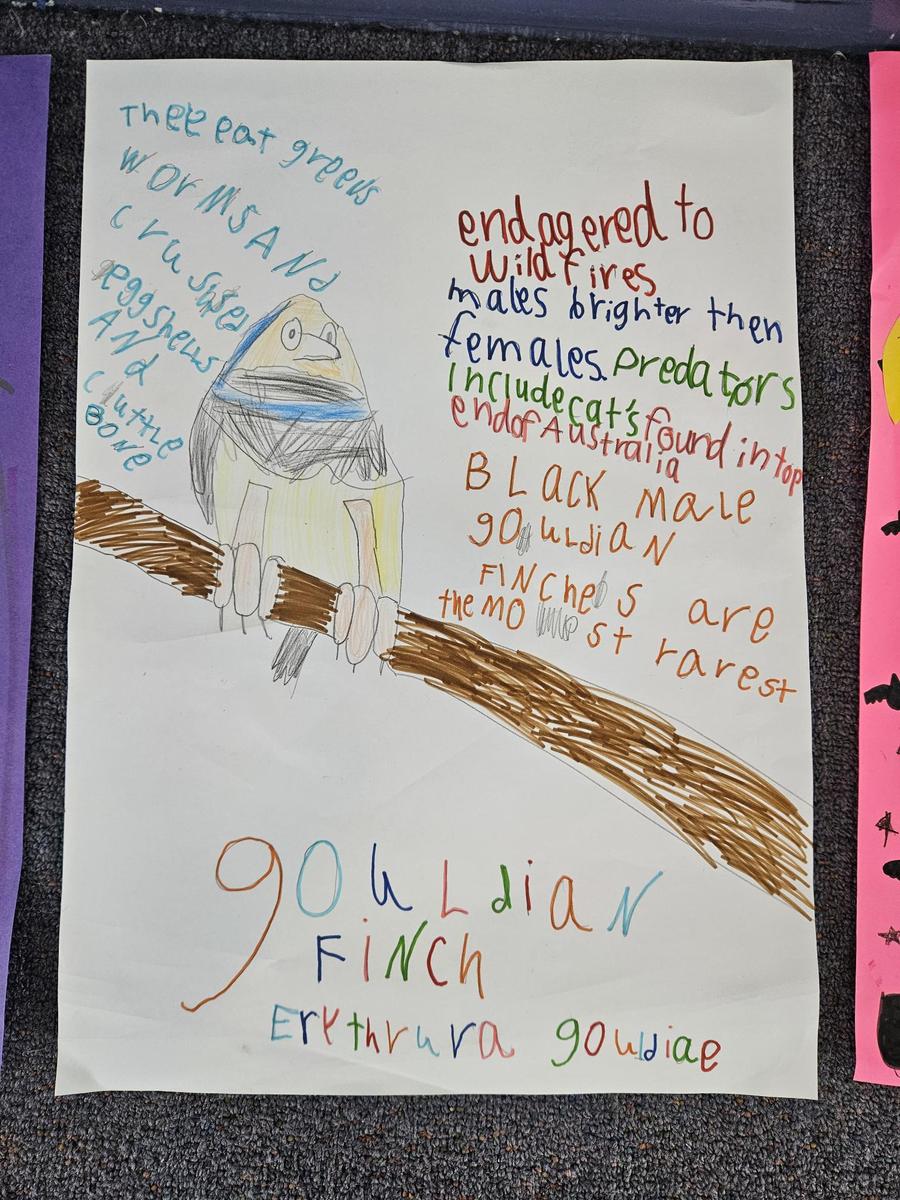 Theee eat greens
WOrMs ANd
crushed
eggshells
ANd
cuttle
BONe
endagered to
wild fires
males brighter then
females. predators
include cat's found in top
end of Australia
BLACK Male
gouldian
FINChes are
the most rarest
gouLdiaN
FiNCh
Erethrura gouldiae